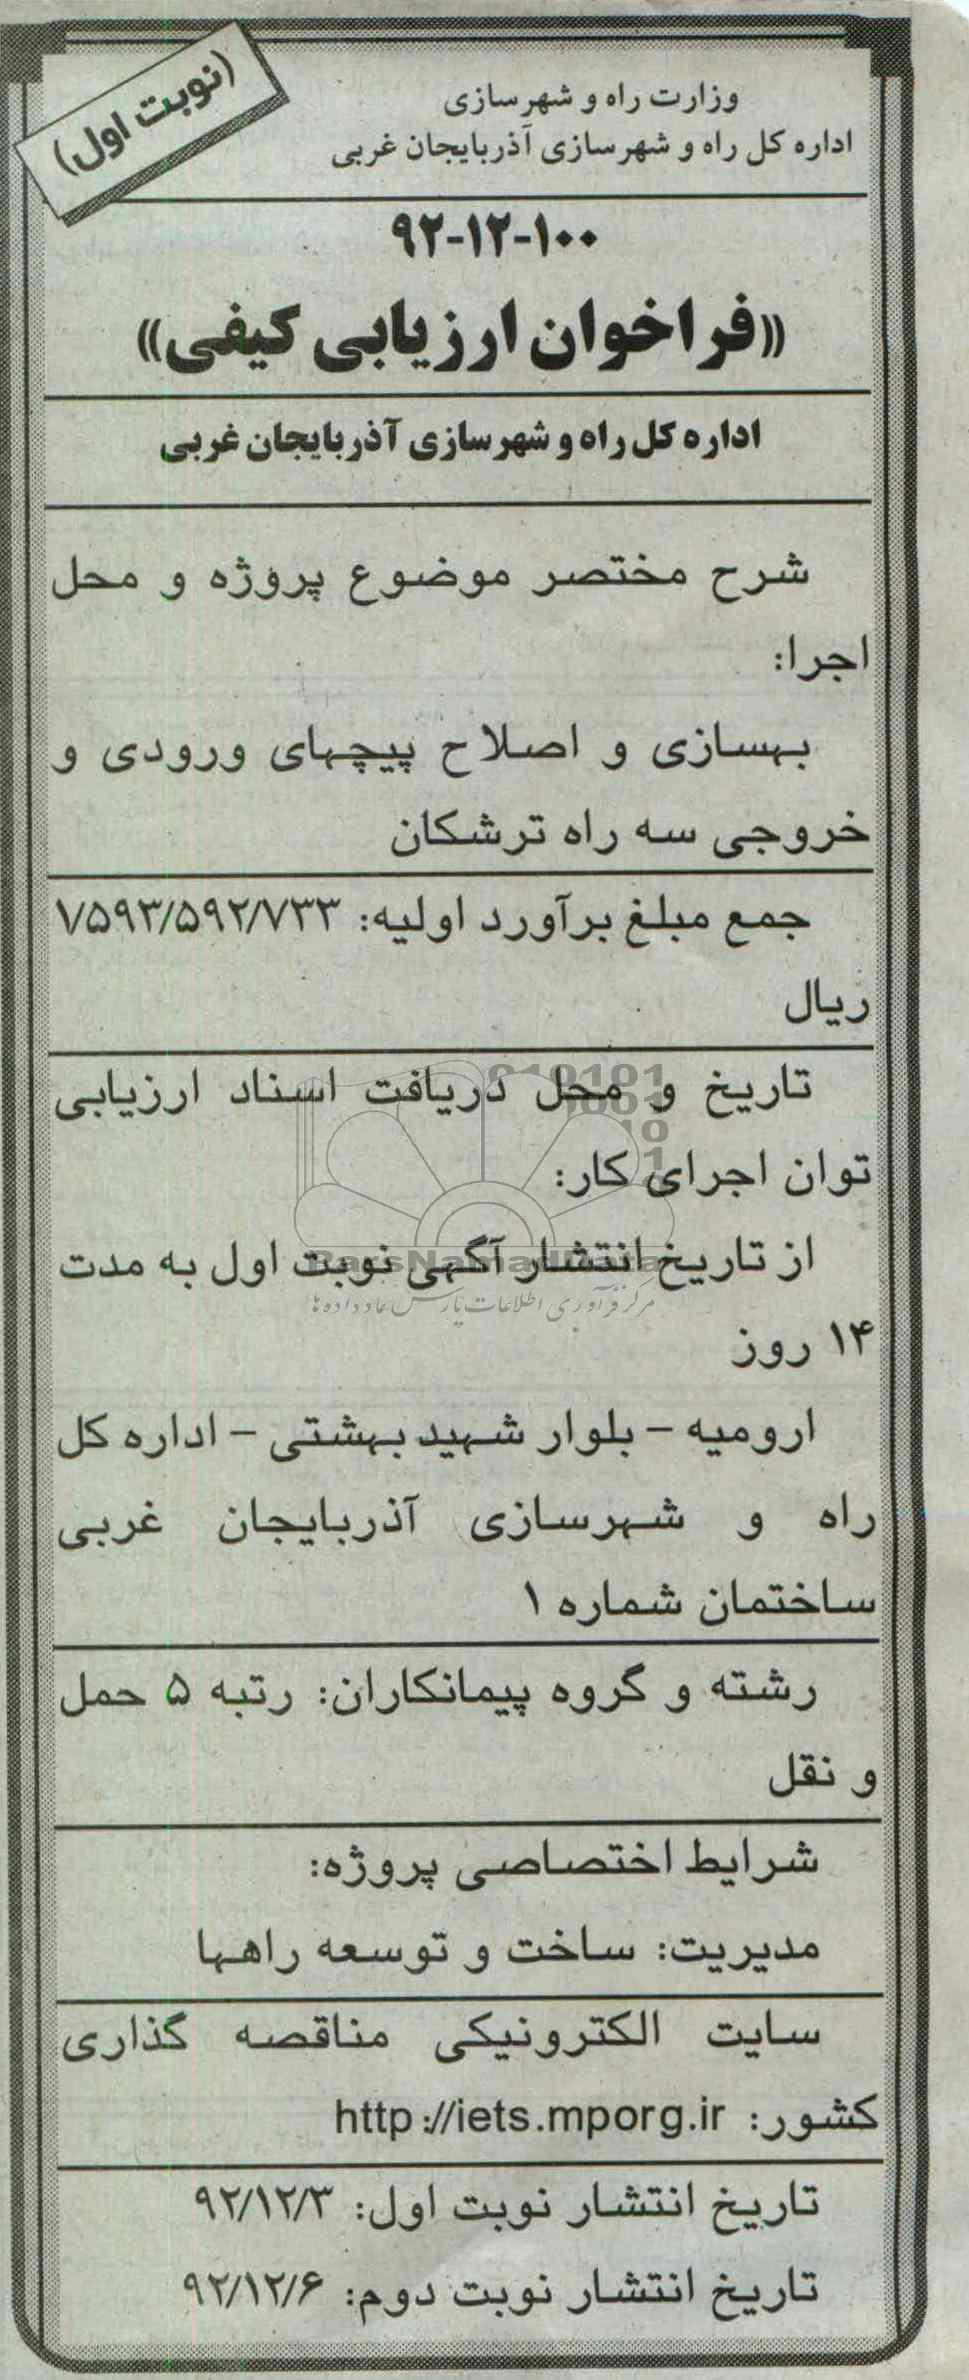 (نوبت اول)
وزارت راه و شهرسازی
اداره کل راه و شهرسازی آذربایجان غربی
۹۲-۱۲-۱۰۰
«فراخوان ارزیابی کیفی»
اداره کل راه و شهرسازی آذربایجان غربی
شرح مختصر موضوع پروژه و محل
اجرا:
بهسازی و اصلاح پیچهای ورودی و
خروجی سه راه ترشکان
جمع مبلغ برآورد اولیه: ۷/۵۹۳/۵۹۲/۷۳۳
ریال
تاریخ و محل دریافت اسناد ارزیابی
توان اجرای کار:
از تاریخ انتشار آگهی نوبت اول به مدت
۱۴ روز
ارومیه – بلوار شهید بهشتی – اداره کل
راه و شهرسازی آذربایجان غربی
ساختمان شماره ۱
رشته و گروه پیمانکاران: رتبه ۵ حمل
و نقل
شرایط اختصاصی پروژه:
مدیریت: ساخت و توسعه راهها
سایت الکترونیکی مناقصه گذاری
کشور: http://iets.mporg.ir
تاریخ انتشار نوبت اول: ۹۲/۱۲/۳
تاریخ انتشار نوبت دوم: ۹۲/۱۲/۶
ParsNamadData
مرکز فرآوری اطلاعات پارس نماد داده ها